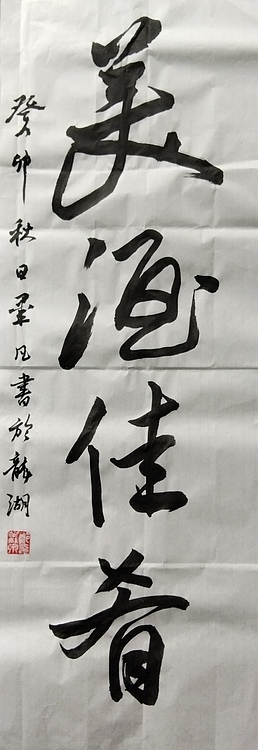 美酒佳肴
癸卯秋日墨凡書於龍湖